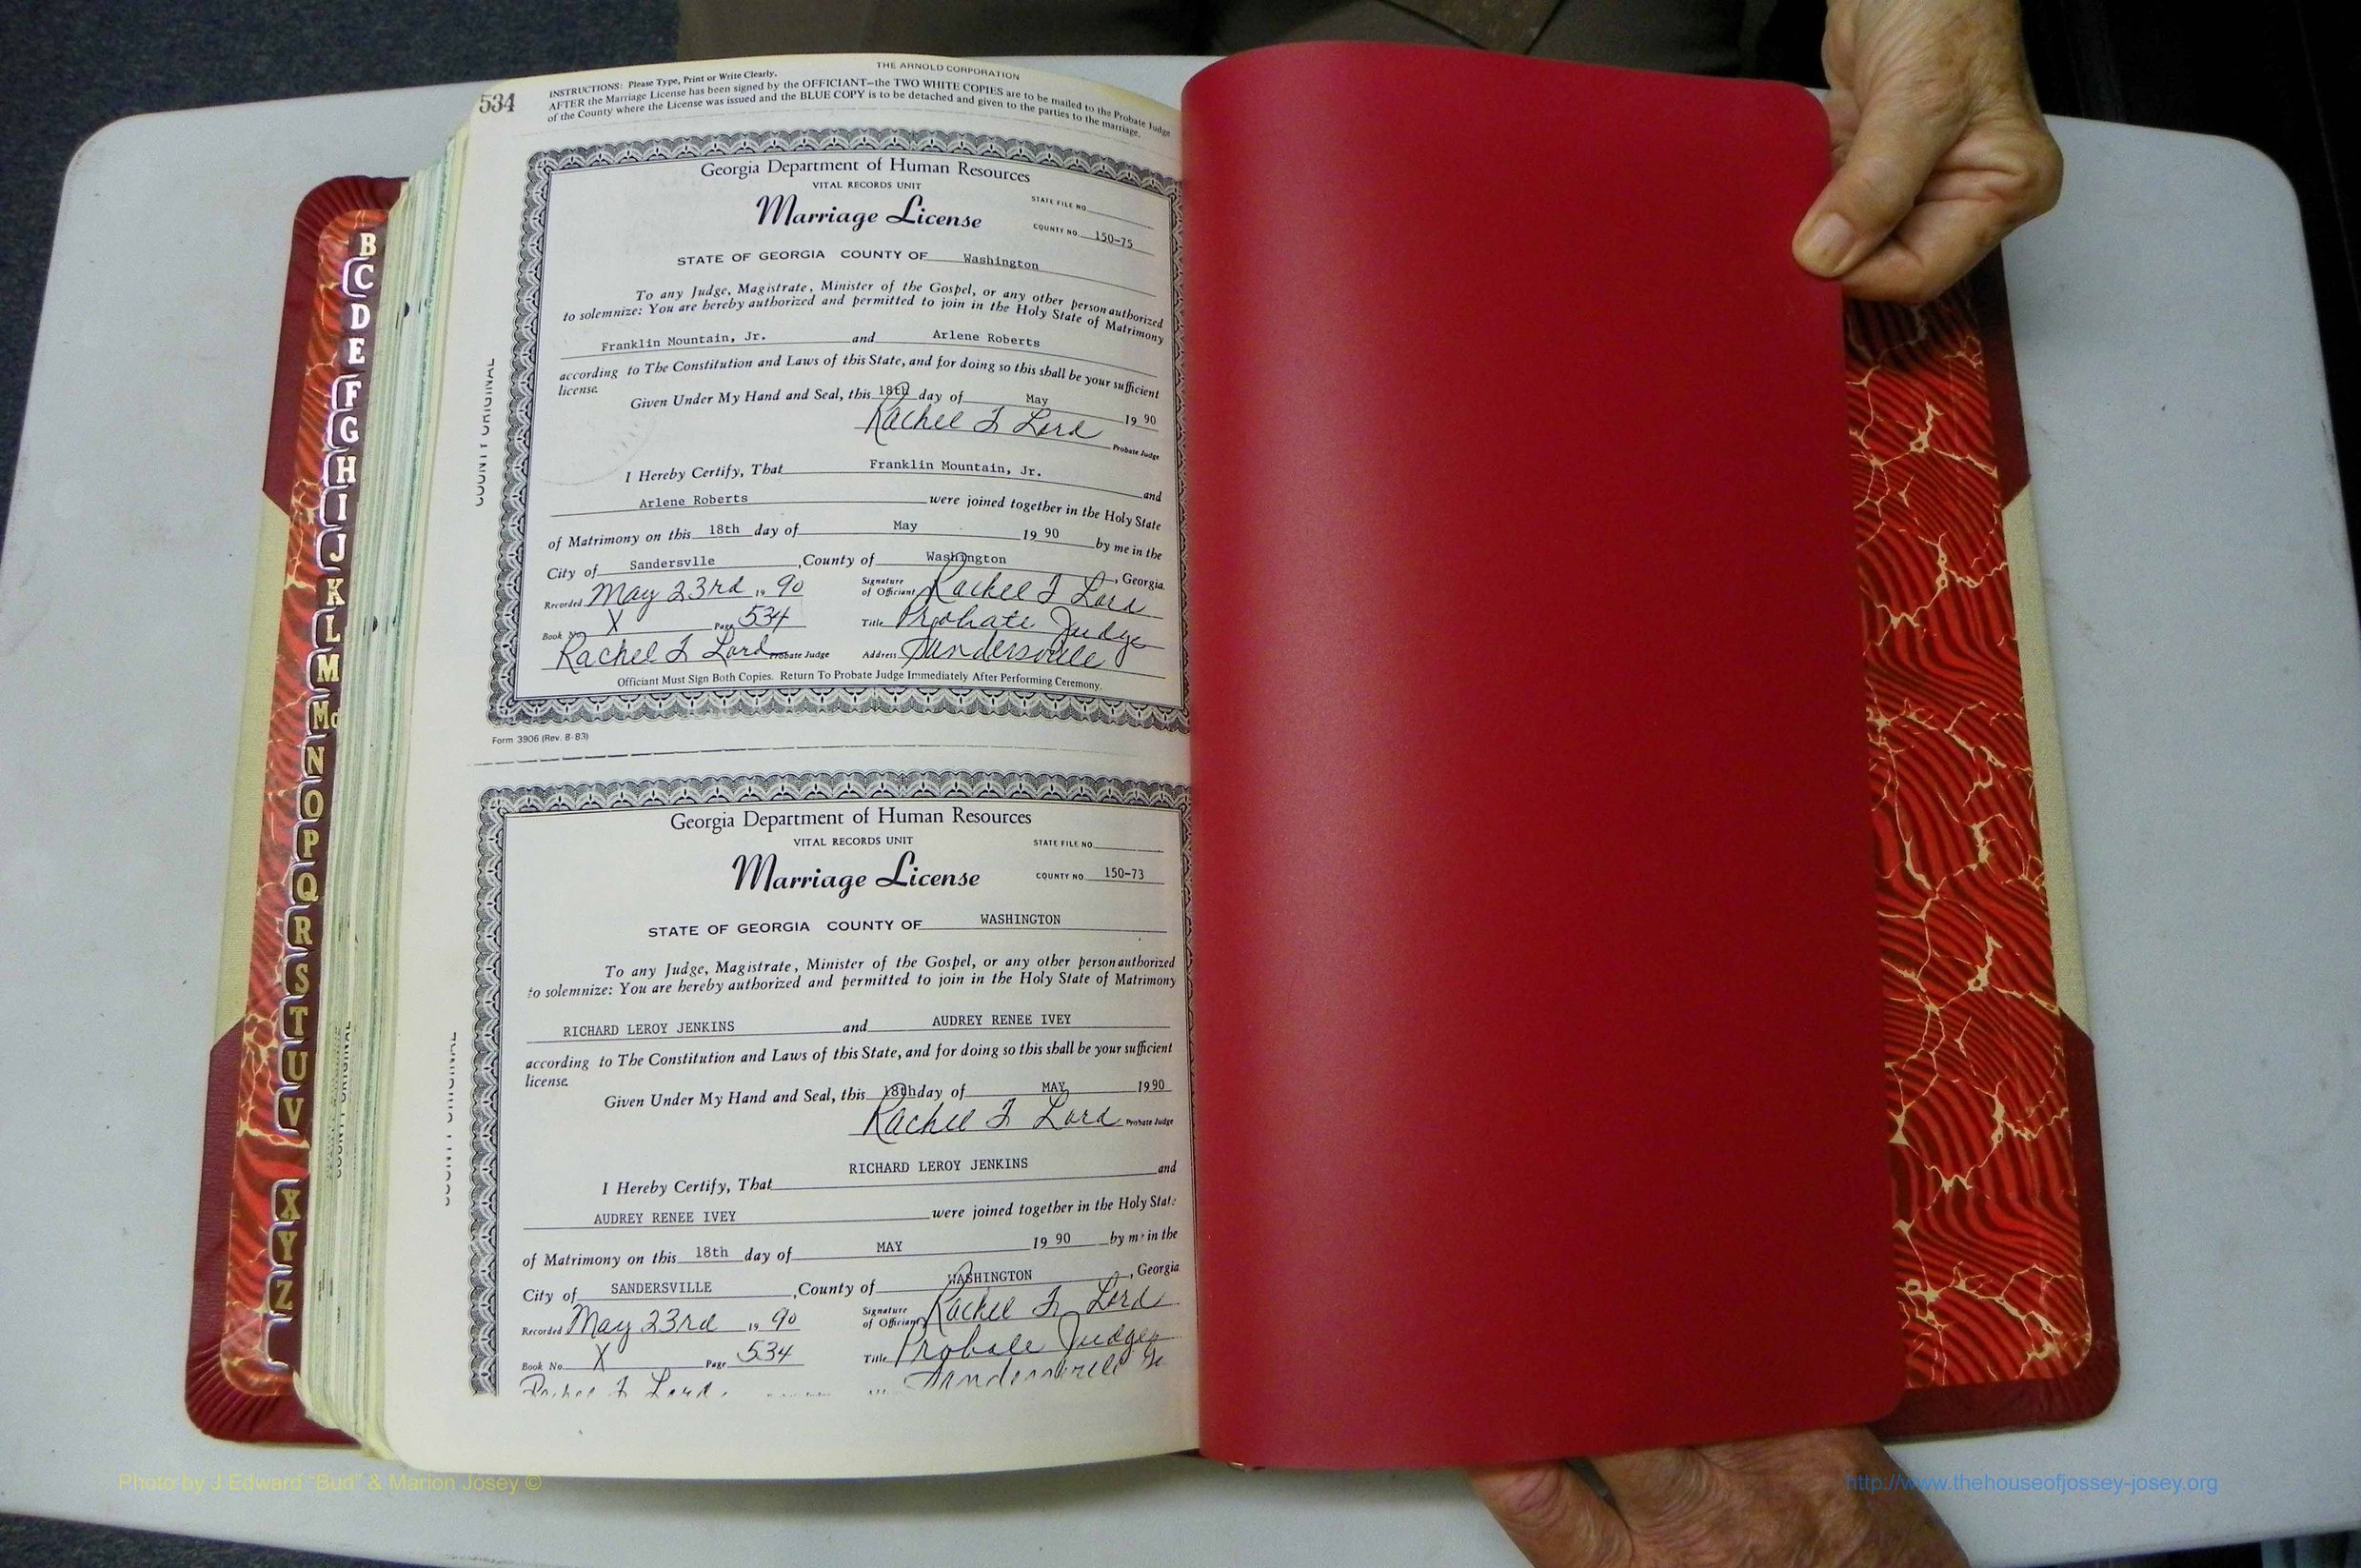 534
INSTRUCTIONS: Please Type, Print or Write Clearly.
THE ARNOLD CORPORATION
AFTER the Marriage License has been signed by the OFFICIANT—the TWO WHITE COPIES are to be mailed to the Probate Judge
of the County where the License was issued and the BLUE COPY is to be detached and given to the parties to the marriage.
Georgia Department of Human Resources
VITAL RECORDS UNIT
STATE FILE NO.
Marriage License
COUNTY NO. 150-75
STATE OF GEORGIA COUNTY OF Washington
To any Judge, Magistrate, Minister of the Gospel, or any other person authorized
to solemnize: You are hereby authorized and permitted to join in the Holy State of Matrimony
Franklin Mountain, Jr. and Arlene Roberts
according to The Constitution and Laws of this State, and for doing so this shall be your sufficient
license.
Given Under My Hand and Seal, this 18th day of May 19 90
Rachel F Lord
Probate Judge
I Hereby Certify, That Franklin Mountain, Jr. and
Arlene Roberts were joined together in the Holy State
of Matrimony on this 18th day of May 19 90 by me in the
City of Sandersvlle , County of Washington , Georgia.
Recorded May 23rd , 19 90 Signature of Officiant Rachel F Lord
Book No. X Page 534 Title Probate Judge
Rachel F Lord Probate Judge Address Sandersville
Officiant Must Sign Both Copies. Return To Probate Judge Immediately After Performing Ceremony.
Form 3906 (Rev. 8-83)
COUNTY ORIGINAL
Georgia Department of Human Resources
VITAL RECORDS UNIT
STATE FILE NO.
Marriage License
COUNTY NO. 150-73
STATE OF GEORGIA COUNTY OF WASHINGTON
To any Judge, Magistrate, Minister of the Gospel, or any other person authorized
to solemnize: You are hereby authorized and permitted to join in the Holy State of Matrimony
RICHARD LEROY JENKINS and AUDREY RENEE IVEY
according to The Constitution and Laws of this State, and for doing so this shall be your sufficient
license.
Given Under My Hand and Seal, this 18th day of MAY 19 90
Rachel F Lord Probate Judge
I Hereby Certify, That RICHARD LEROY JENKINS and
AUDREY RENEE IVEY were joined together in the Holy State
of Matrimony on this 18th day of MAY 19 90 by me in the
City of SANDERSVILLE , County of WASHINGTON , Georgia
Recorded May 23rd , 19 90 Signature of Officiant Rachel F. Lord
Book No. X Page 534 Title Probate Judge
Rachel F Lord Sandersville Ga
COUNTY ORIGINAL
COUNTY ORIGINAL
B
C
D
E
F
G
H
I
J
K
L
M
Mc
N
O
P
Q
R
S
T
U
V
X
Y
Z
Photo by J Edward "Bud" & Marion Josey ©
http://www.thehouseofjossey-josey.org